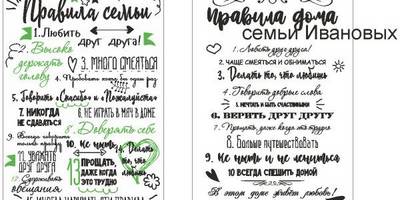 Правила семьи
1. Любить
друг друга!
2. Высоко
держать
голову
3. много смеяться
4. Пробовать
5. Говорить «Спасибо» и «Пожалуйста»
7. НИКОГДА
не сдаваться
6. НЕ ИГРАТЬ В МЯЧ В ДОМЕ
8. Доверять себе
9. Всегда говорить
только правду
10. Не ныть
11. УВАЖАТЬ
ДРУГ ДРУГА
12. Сдерживать
обещания
13 ПРОЩАТЬ,
ДАЖЕ КОГДА
ЭТО ТРУДНО
14. Делать
то, что
правила дома
семьи Ивановых
1. Любить друг друга!
2. ЧАЩЕ СМЕЯТЬСЯ И ОБНИМАТЬСЯ
3. Делать то, что любишь
4. Говорить добрые слова
5. МЕЧТАТЬ И БЫТЬ СЧАСТЛИВЫМИ
6. ВЕРИТЬ ДРУГ ДРУГУ
7. Прощать даже когда это трудно
8. Больше путешествовать
9. Не ныть и не лениться
10 ВСЕГДА СПЕШИТЬ ДОМОЙ
В этом доме живёт любовь!